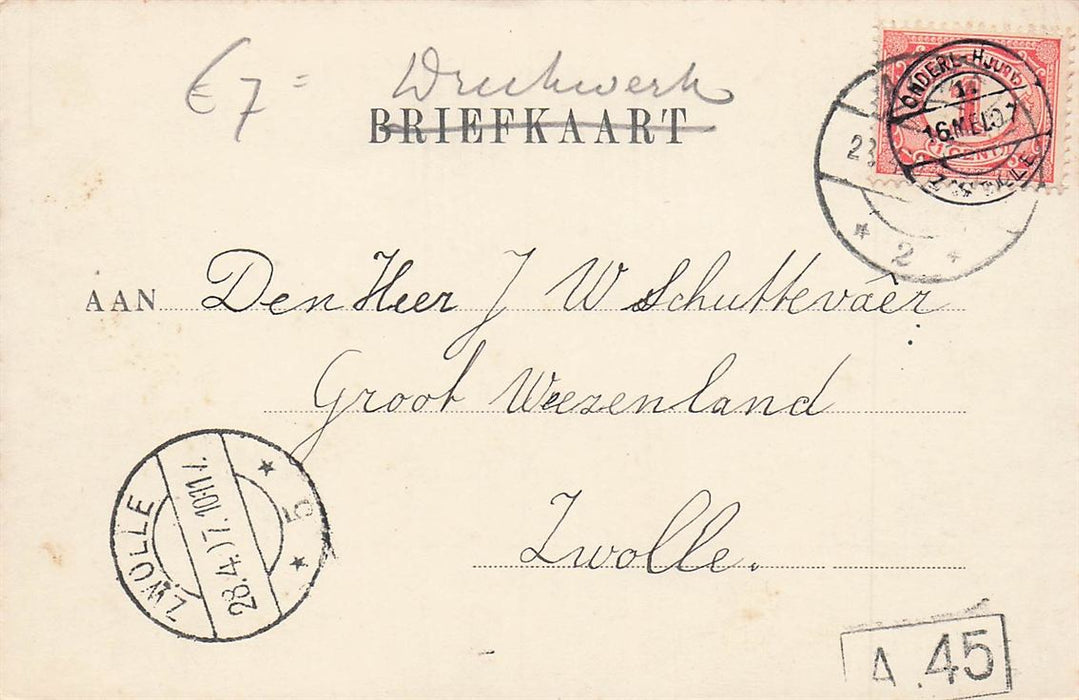 € 7 = Drukwerk
BRIEFKAART
ONDERL-H.
1
16 MEI 07
ZWOLLE
CENT
23
* 2 *
AAN Den Heer J W Schuttevâer
Groot Weezenland
Zwolle.
ZWOLLE
28.4.07. 10-11V.
* 5 *
A. 45